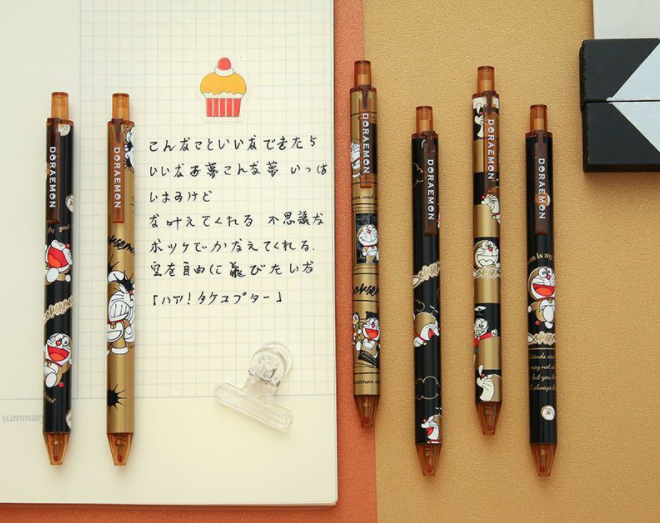 こんなこといいなできたら
いいなあ夢こんな夢 いっぱ
いあるけど
な叶えてくれる 不思議な
ポッケでかなえてくれる.
空を自由に飛びたいな
「ハァ!タケコプター」
summary
DORAEMON
DORAEMON
DORAEMON
DORAEMON
DORAEMON
DORAEMON